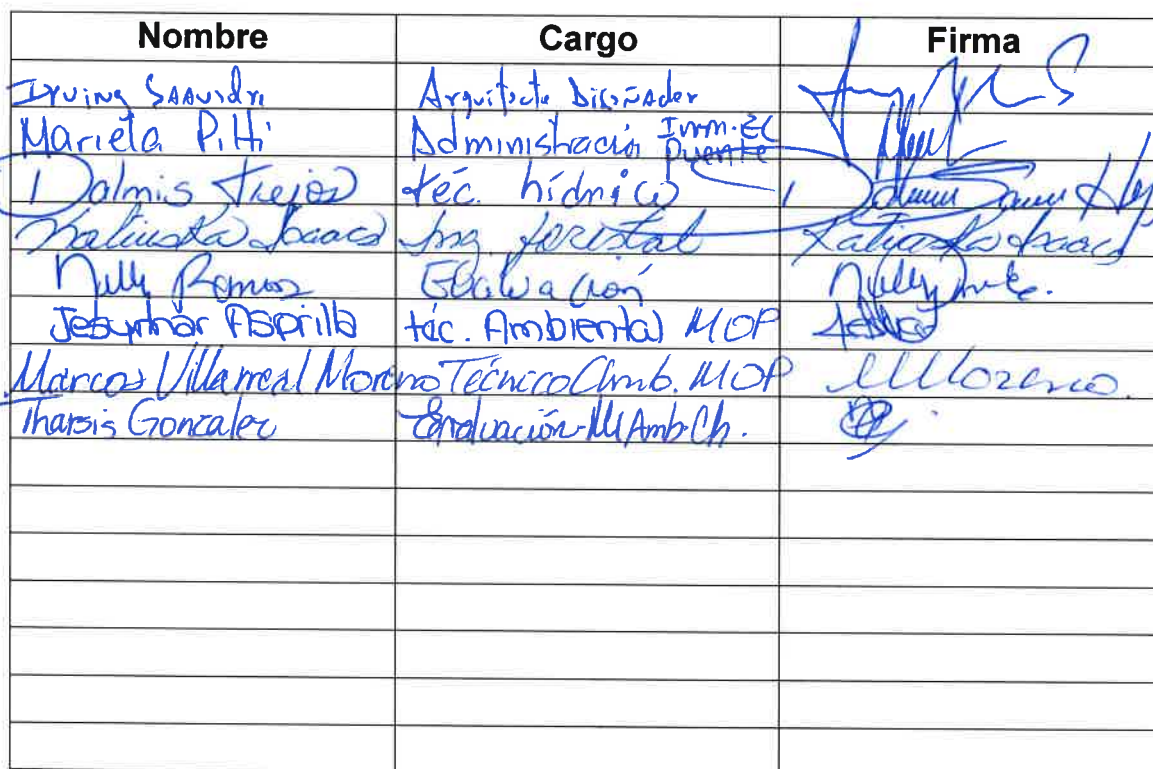 Nombre Cargo Firma
Irving Saavedra Arquitecto Diseñador
Mariela Pitti Administración Inm. El Puente
Dalmis Trejos téc. hídrico
Katiuska Isaacs Ing. forestal Katiuska Isaacs
Nelly Ramos Evaluación
Jesymhar Asprilla téc. Ambiental MOP
Marcos Villarreal Moreno Técnico Amb. MOP MMoreno.
Tharsis González Evaluación-MiAmb-Ch.